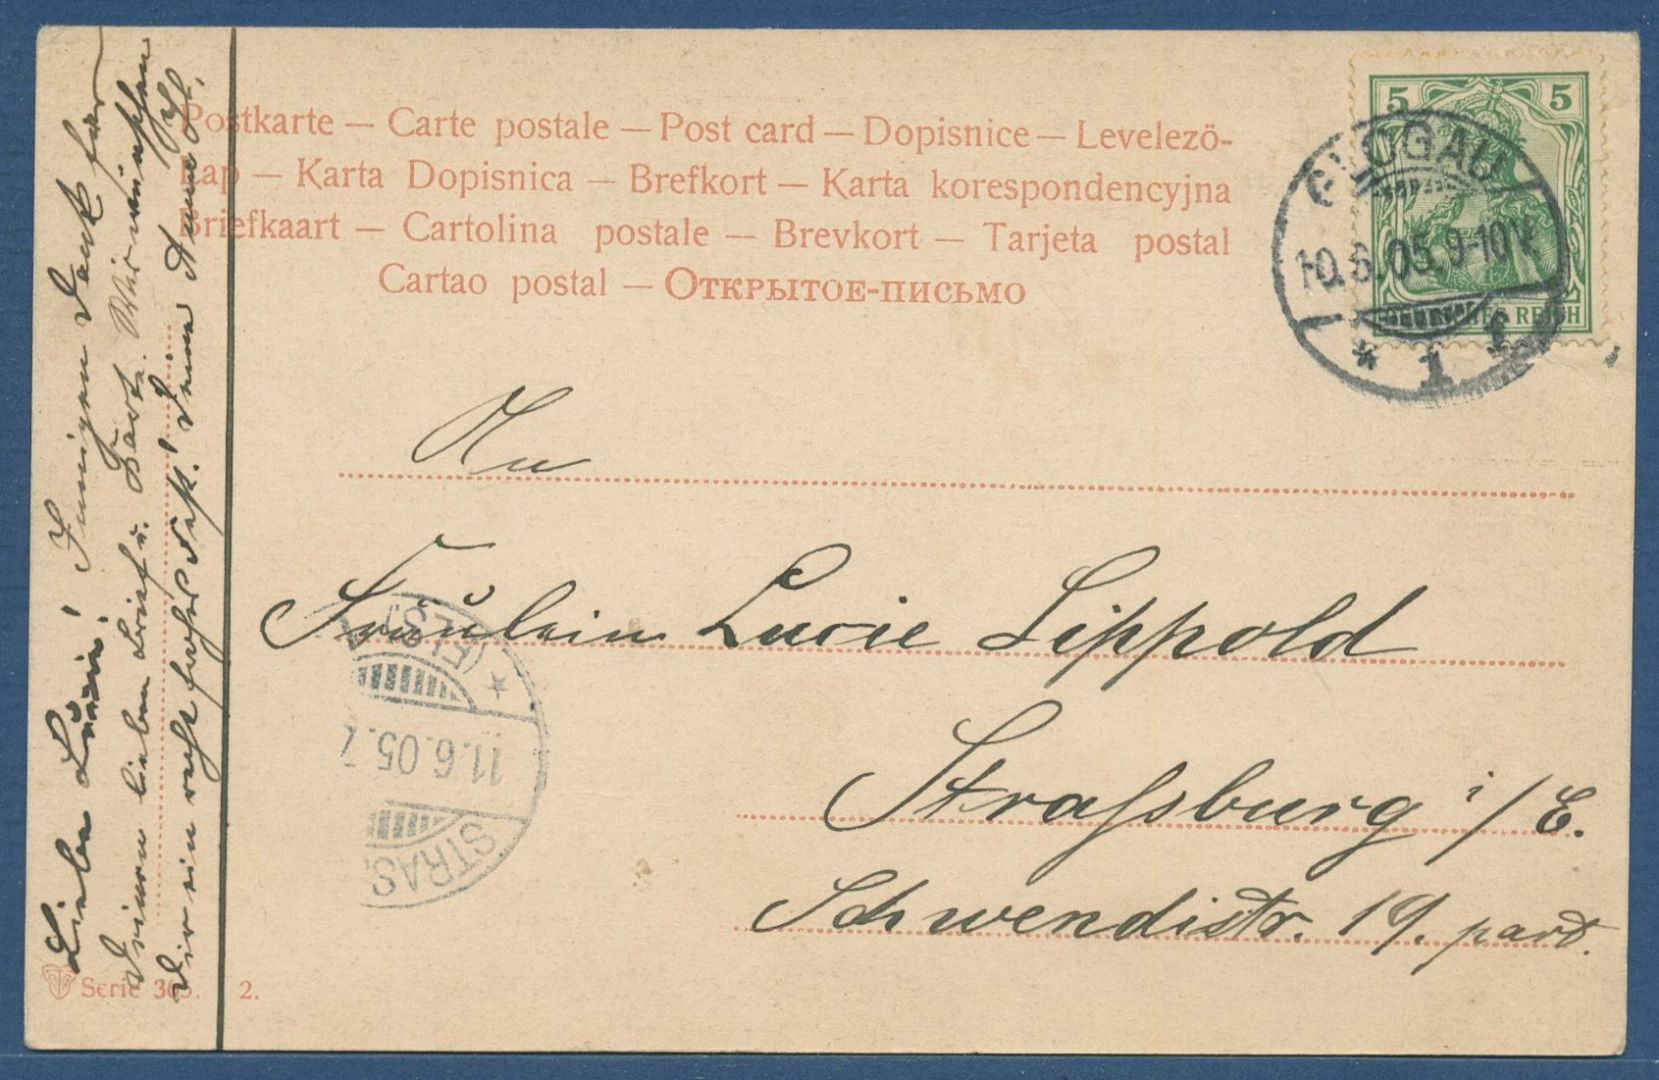 Postkarte — Carte postale — Post card — Dopisnice — Levelező-
Lap — Karta Dopisnica — Brefkort — Karta korespondencyjna
Briefkaart — Cartolina postale — Brevkort — Tarjeta postal
Cartao postal — Открытое-письмо
5 5
DEUTSCHES REICH
GLOGAU
10.6.05.9-10V.
* 1 f
An
Fräulein Lucie Lippold
Straßburg i/E.
Schwendistr. 19. part.
STRAS
11.6.05.7
(ELS) *
Liebe Lucie! Innigen Dank für
Deinen lieben Brief u. Karte. Wir wünschen
Dir ein recht frohes Fest. Deine
Serie 365. 2.